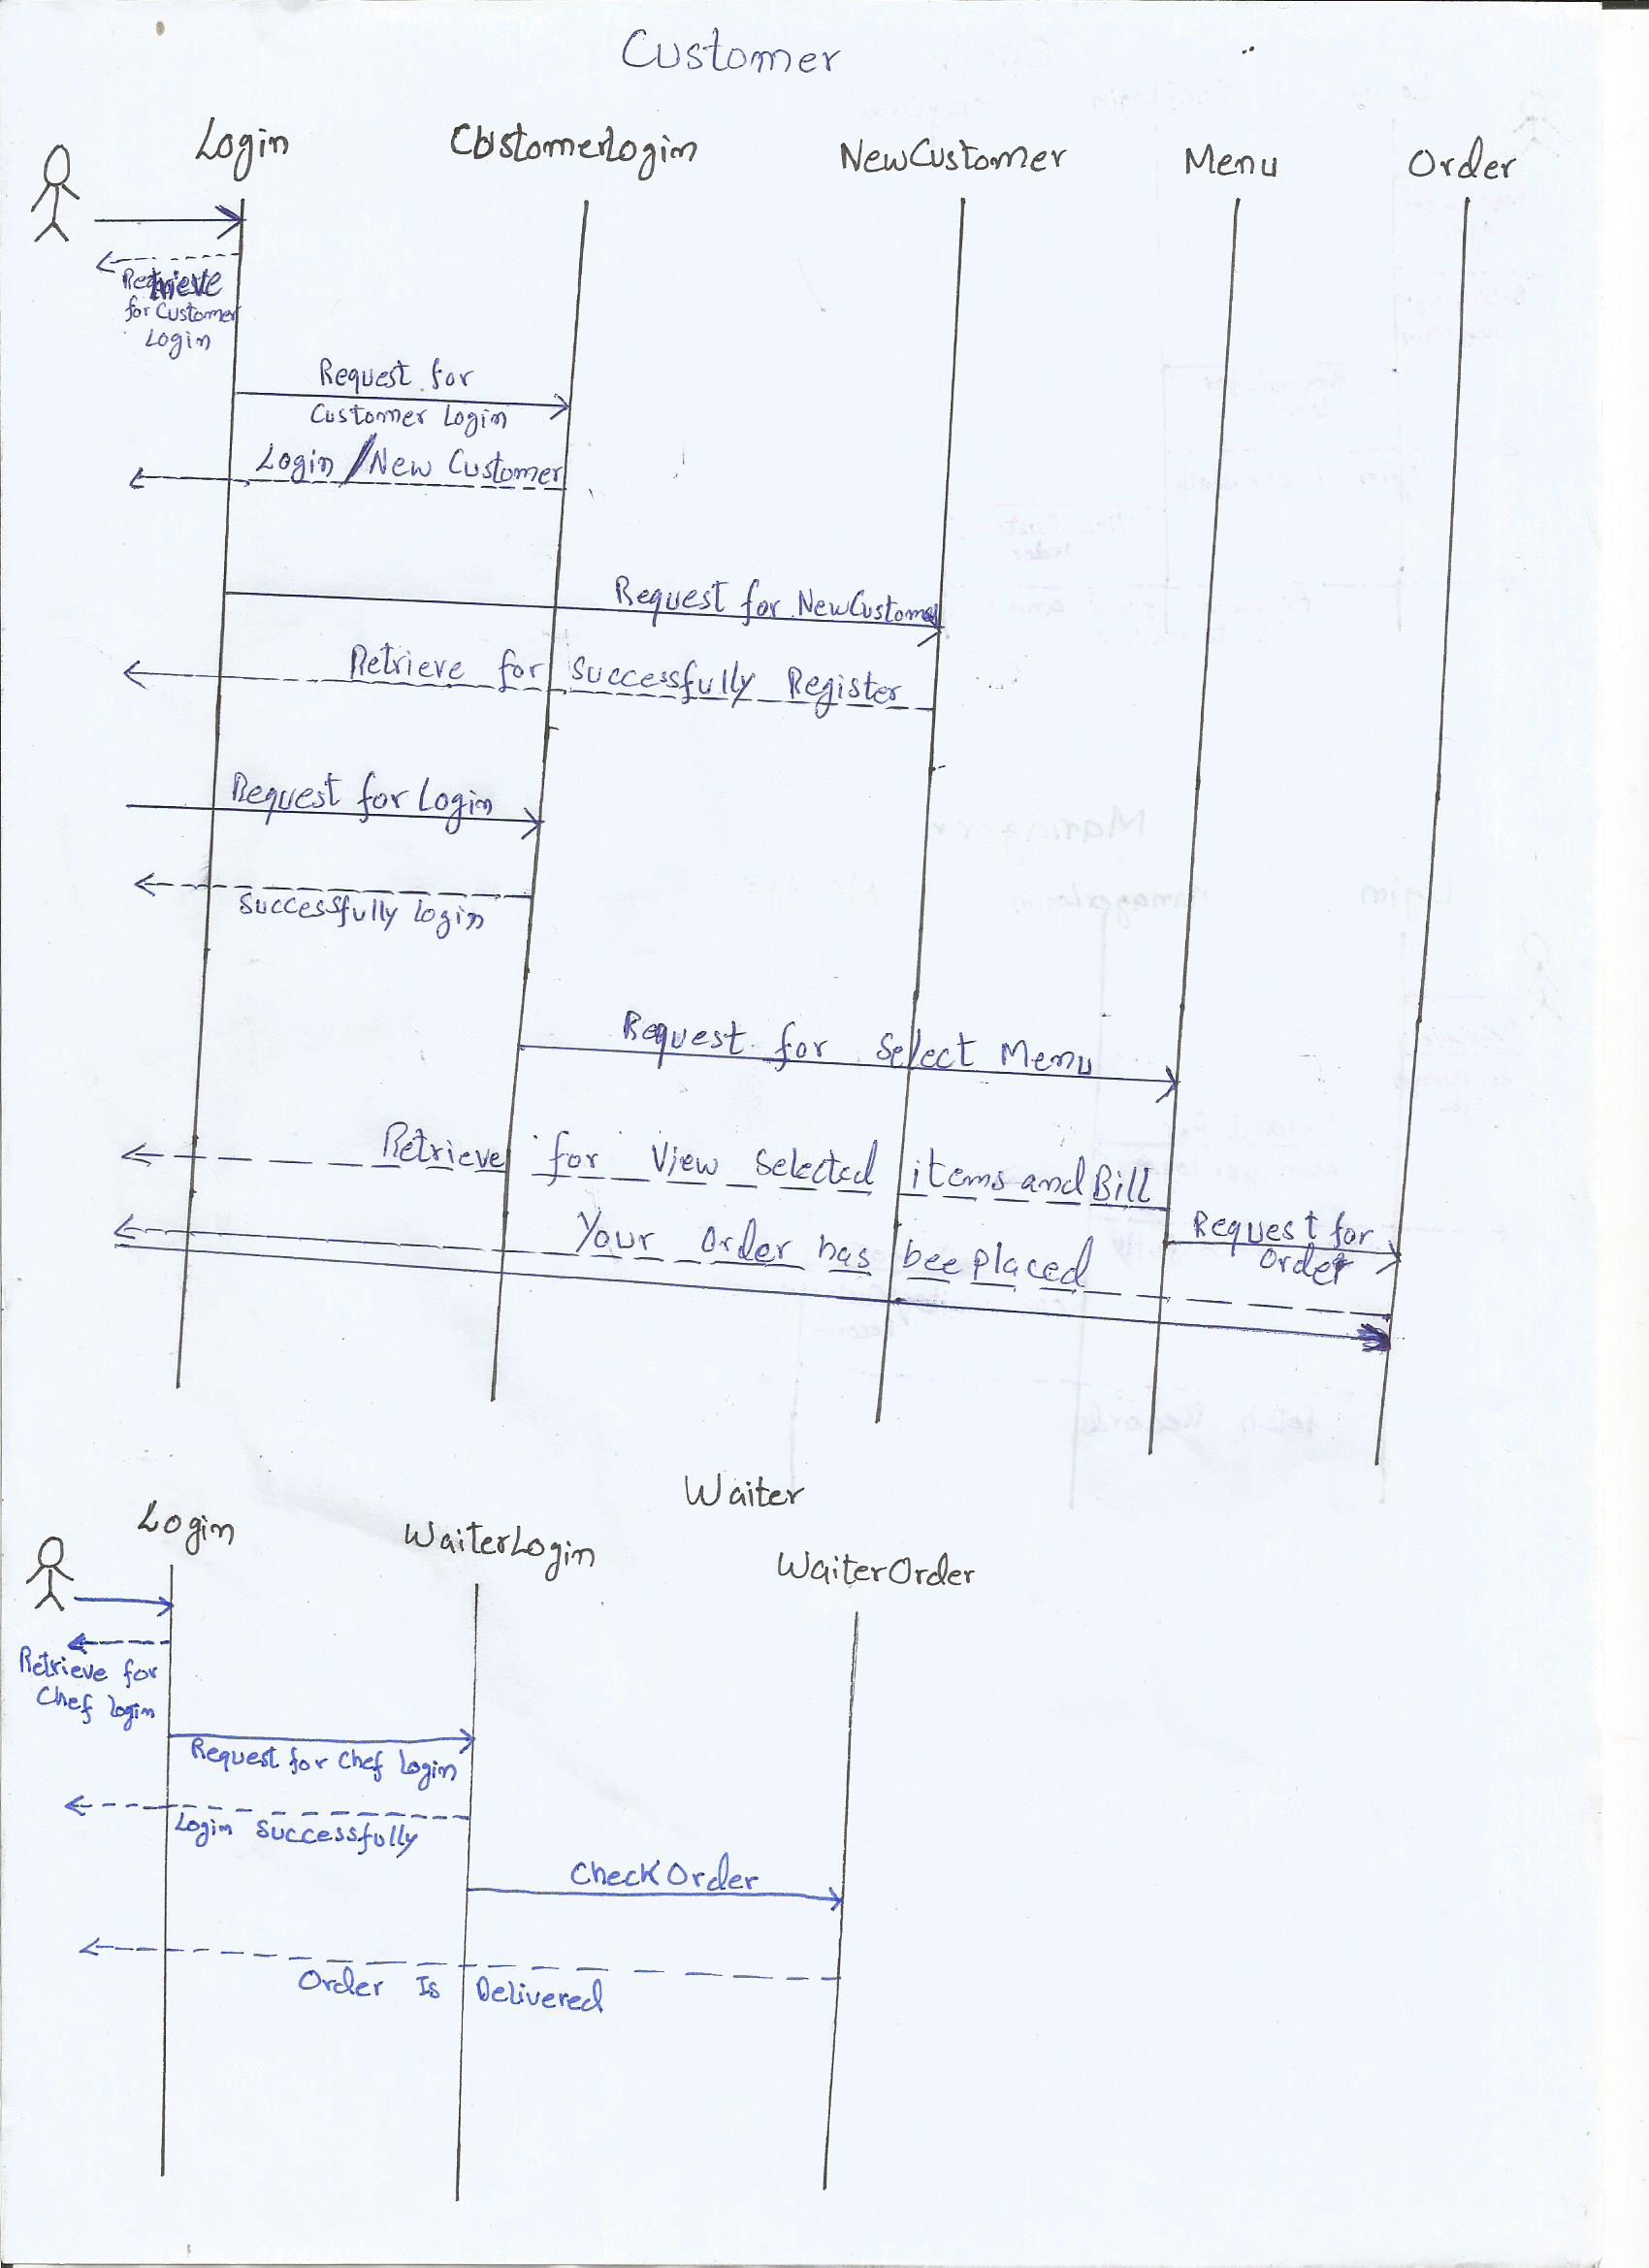 Customer
Login
CustomerLogin
NewCustomer
Menu
Order
Retrieve
for Customer
Login
Request for
Customer Login
Login / New Customer
Request for NewCustomer
Retrieve for Successfully Register
Request for Login
Successfully login
Request for Select Menu
Retrieve for View Selected items and Bill
Request for
Order
Your Order has bee placed
Waiter
Login
WaiterLogin
WaiterOrder
Retrieve for
Chef login
Request for Chef login
Login Successfully
Check Order
Order Is Delivered